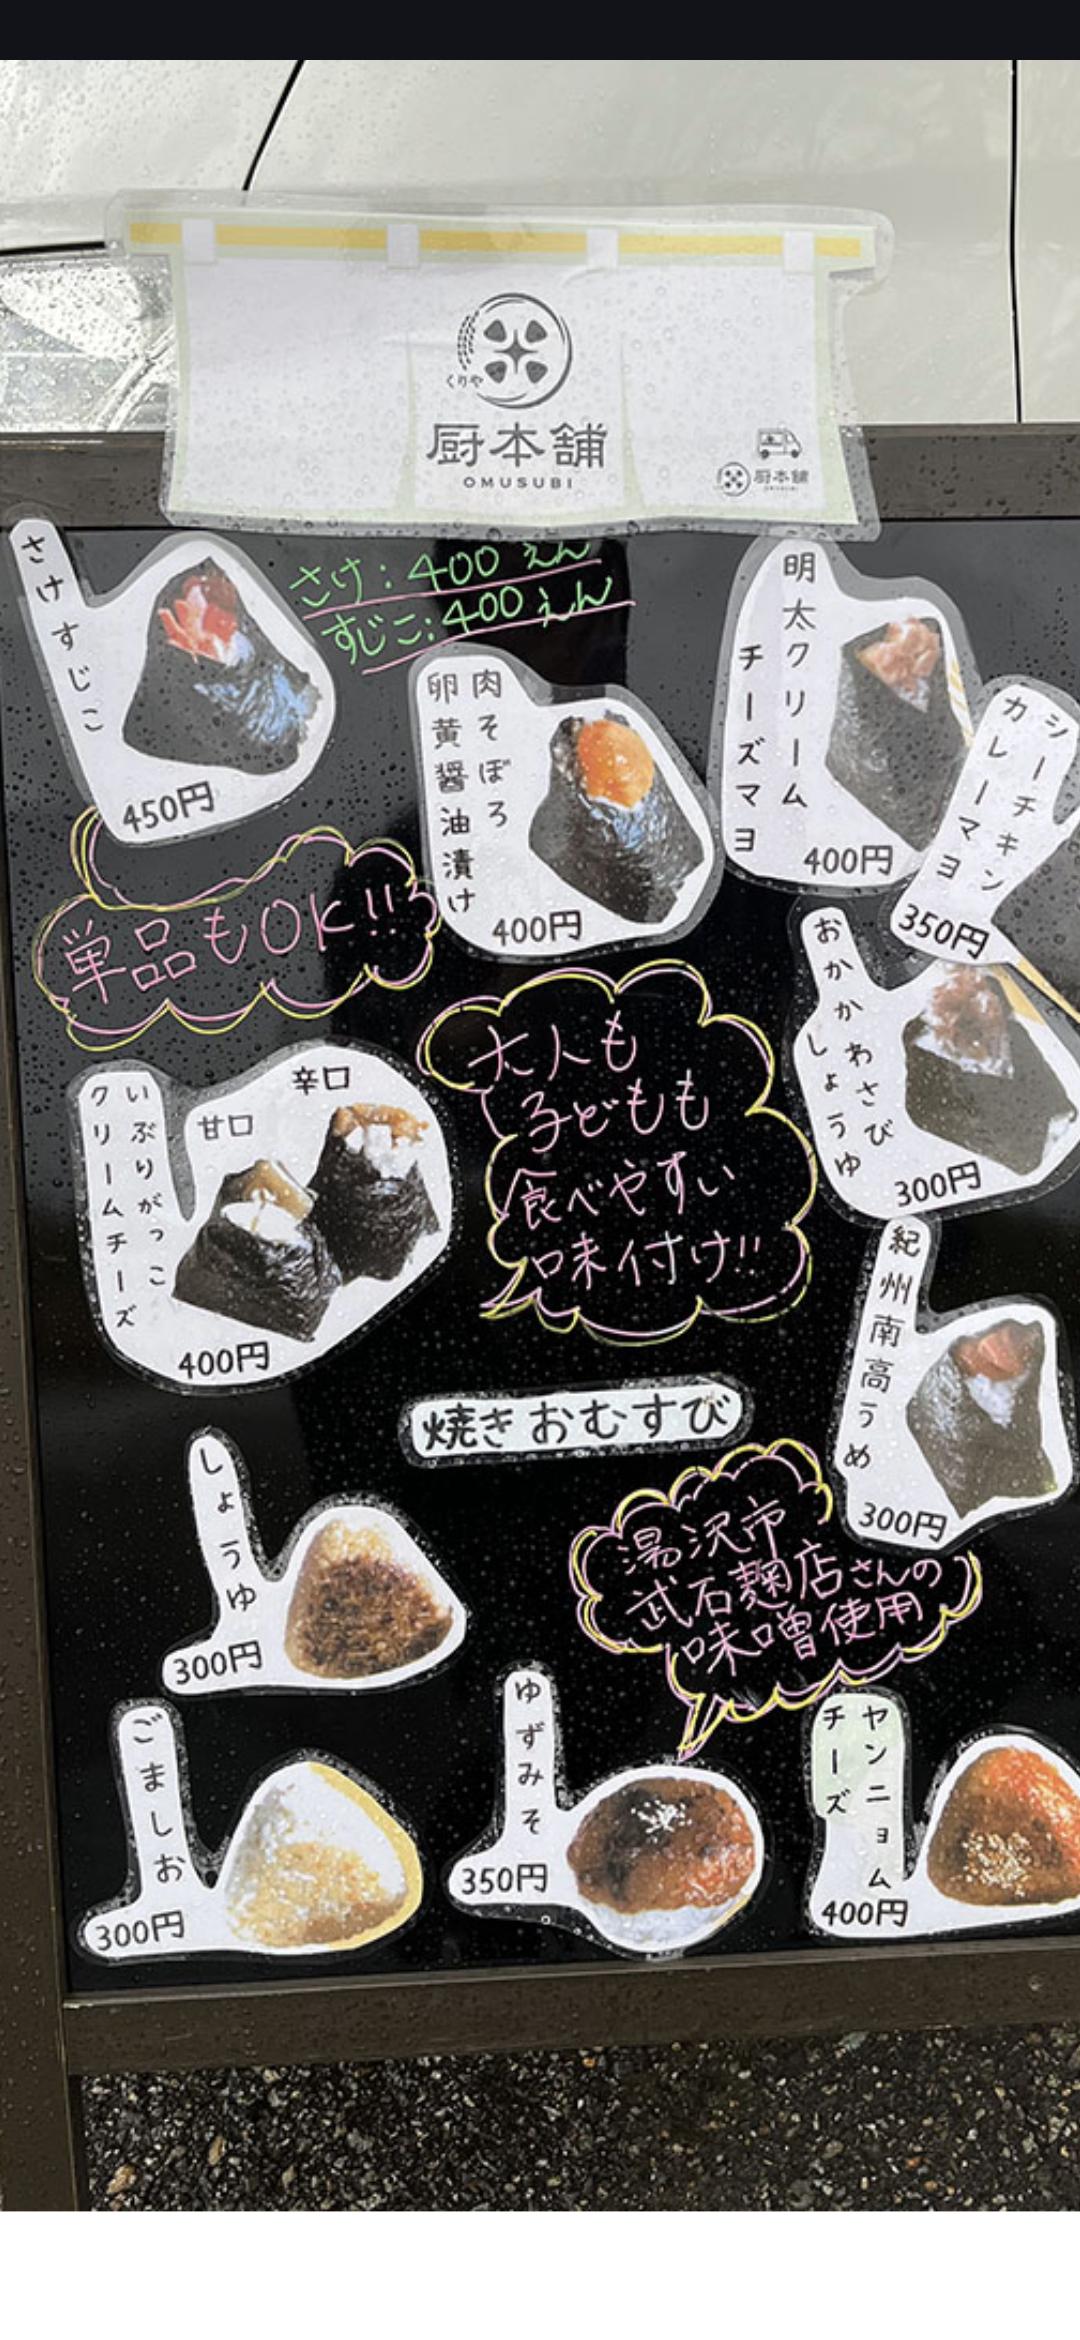 くりや
厨本舗
OMUSUBI
厨本舗
さけすじこ
450円
さけ:400えん
すじこ:400えん
単品もOK!!
肉そぼろ
卵黄醤油漬け
400円
明太クリーム
チーズマヨ
400円
シーチキン
カレーマヨ
350円
おかか わさび
しょうゆ
300円
大人も
子どもも
食べやすい
味付け!!
いぶりがっこ
クリームチーズ
甘口
辛口
400円
紀州南高うめ
300円
焼きおむすび
しょうゆ
300円
湯沢市
武石麹店さんの
味噌使用
ごましお
300円
ゆずみそ
350円
ヤンニョム
チーズ
400円